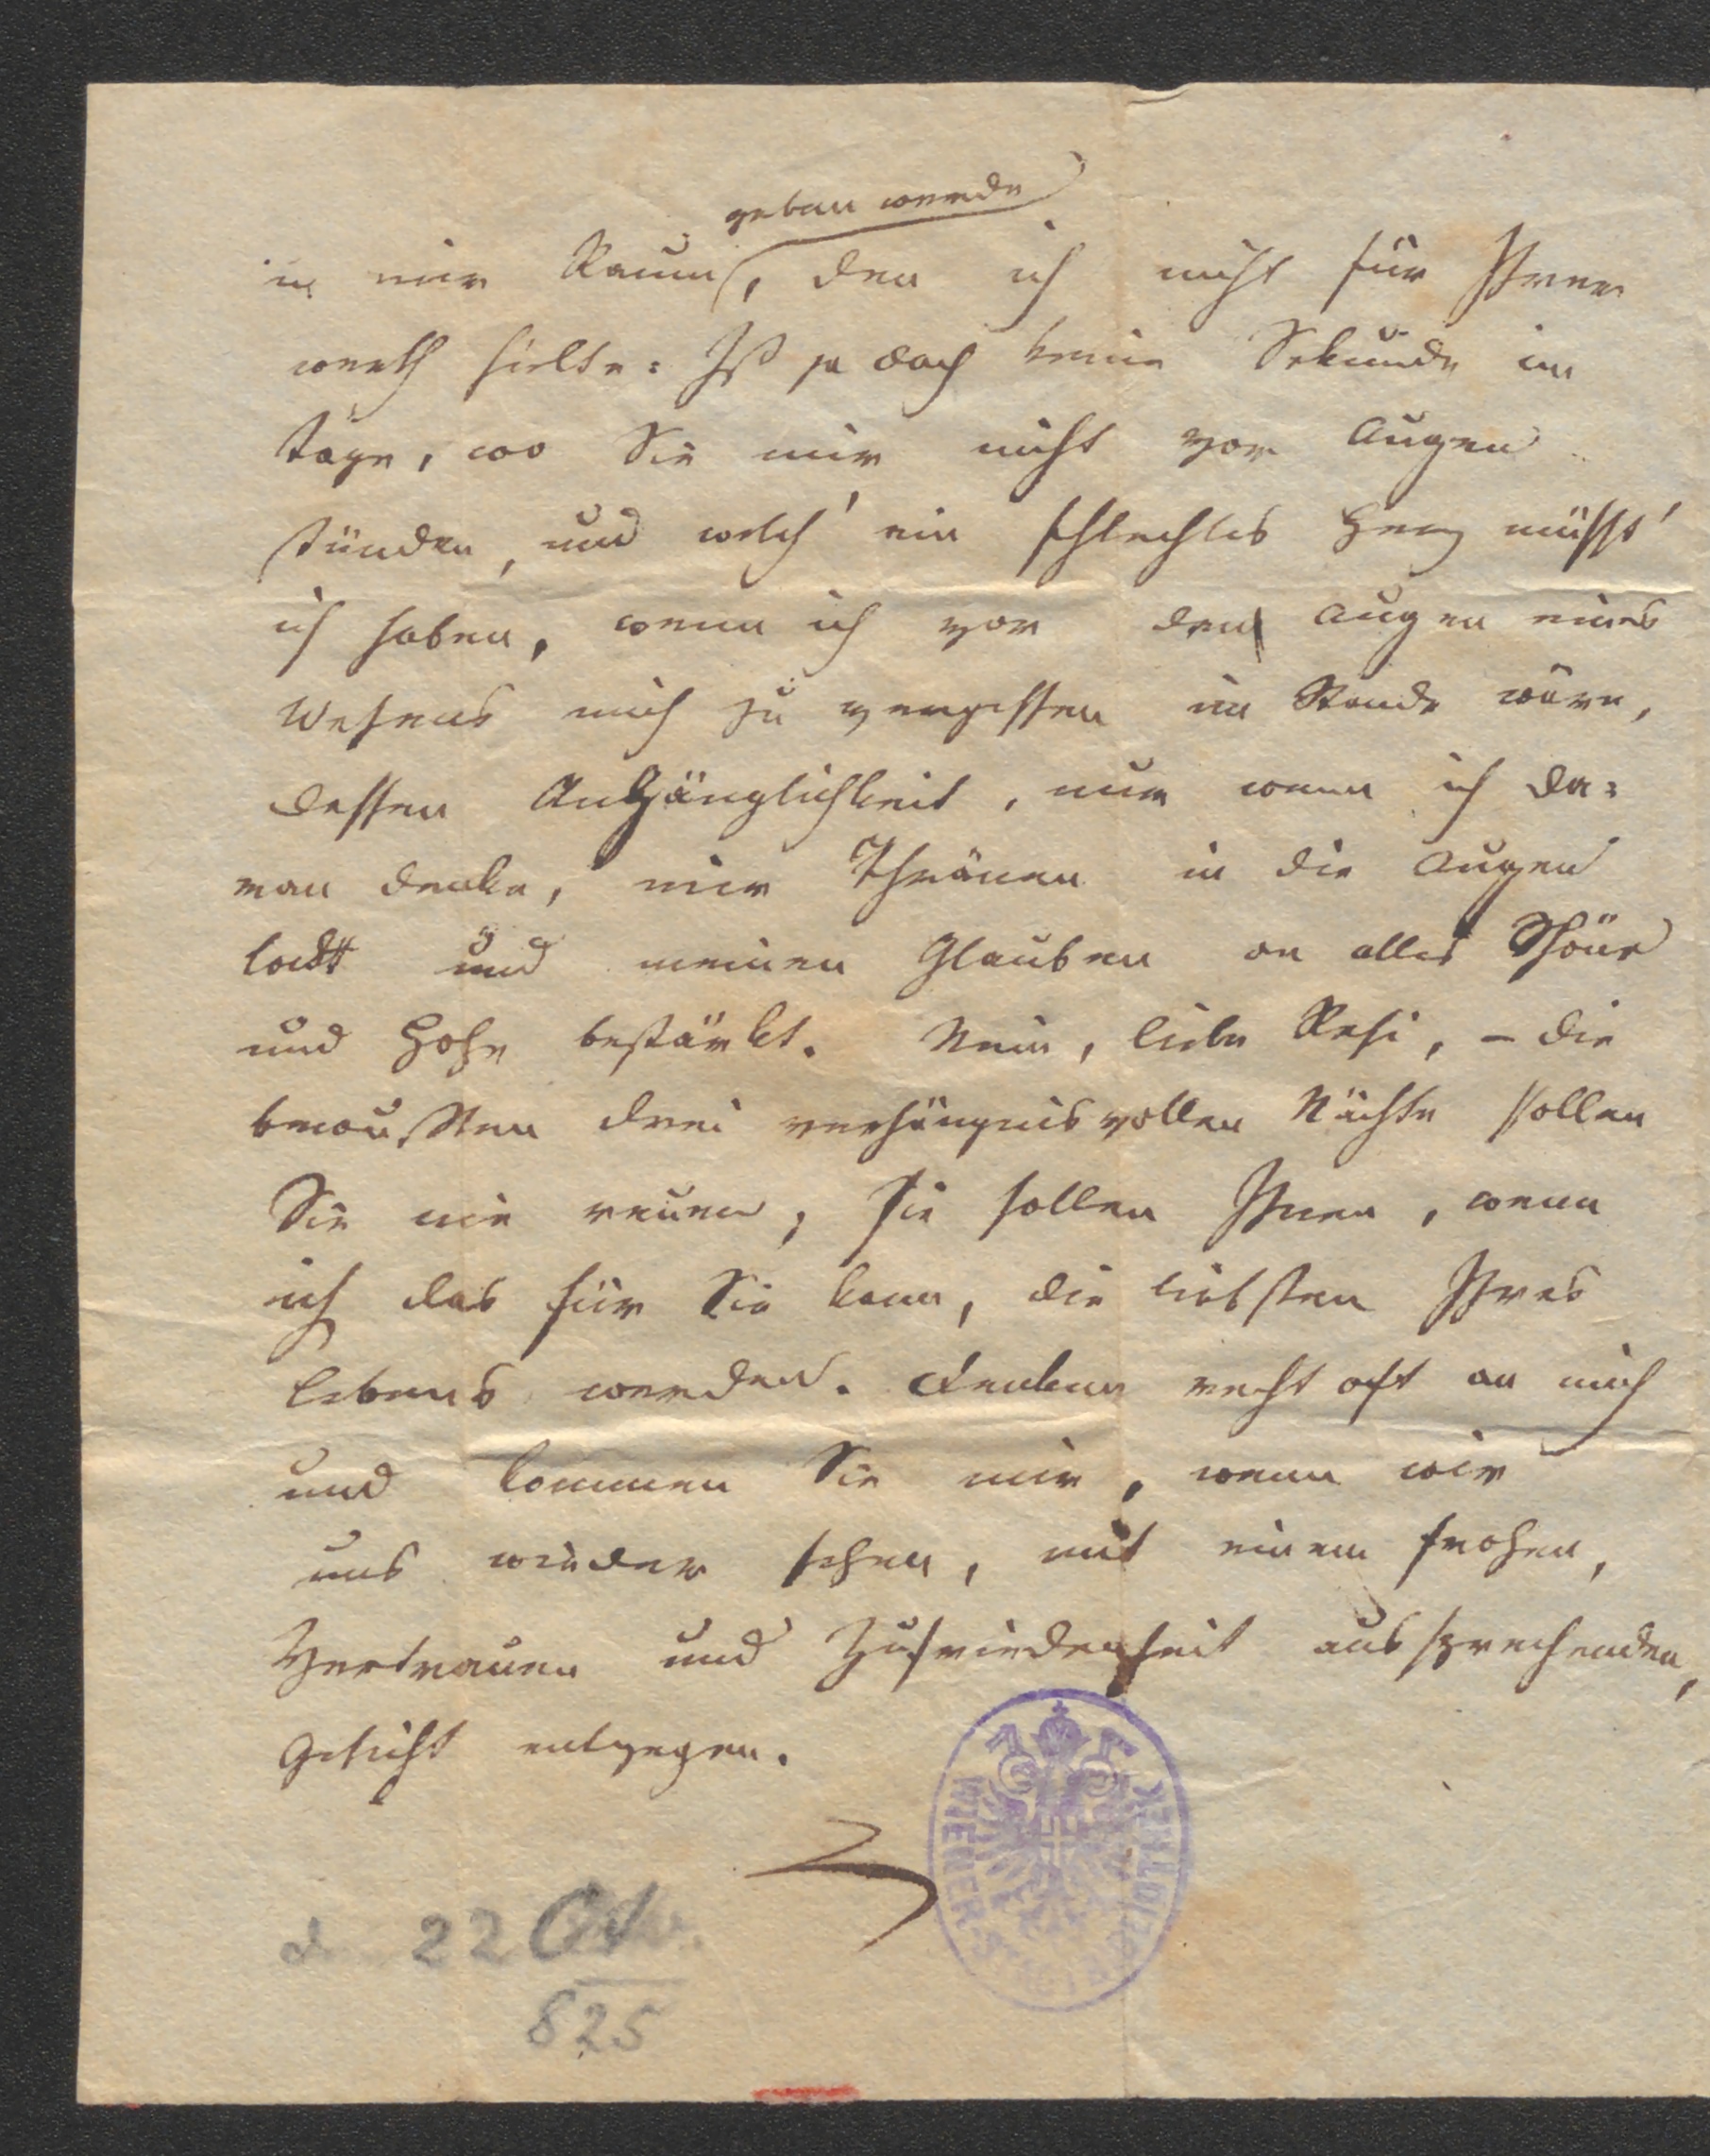 geben werde
in mir Raum, den ich nicht für Ihrer
werth hielte: Ist ja doch keine Sekunde im
Tage, wo Sie mir nicht vor Augen
stünden, und welch' ein schlechtes Herz müsst'
ich haben, wenn ich vor den Augen eines
Wesens mich zu vergessen im Stande wäre,
dessen Anhänglichkeit, nur wenn ich da=
ran denke, mir Thränen in die Augen
lockt und meinen Glauben an alles Schöne
und Hohe bestärkt. Nein, liebe Resi, – die
bewußten drei verhängnisvollen Nächte sollen
Sie nie reuen, sie sollen Ihnen, wenn
ich das für Sie kann, die liebsten Ihres
Lebens werden. Denken recht oft an mich
und kommen Sie mir, wenn wir
uns wieder sehen, mit einem frohen,
Vertrauen und Zufriedenheit aussprechenden,
Gesicht entgegen.
WIENER STADTBIBLIOTHEK
d 22
825